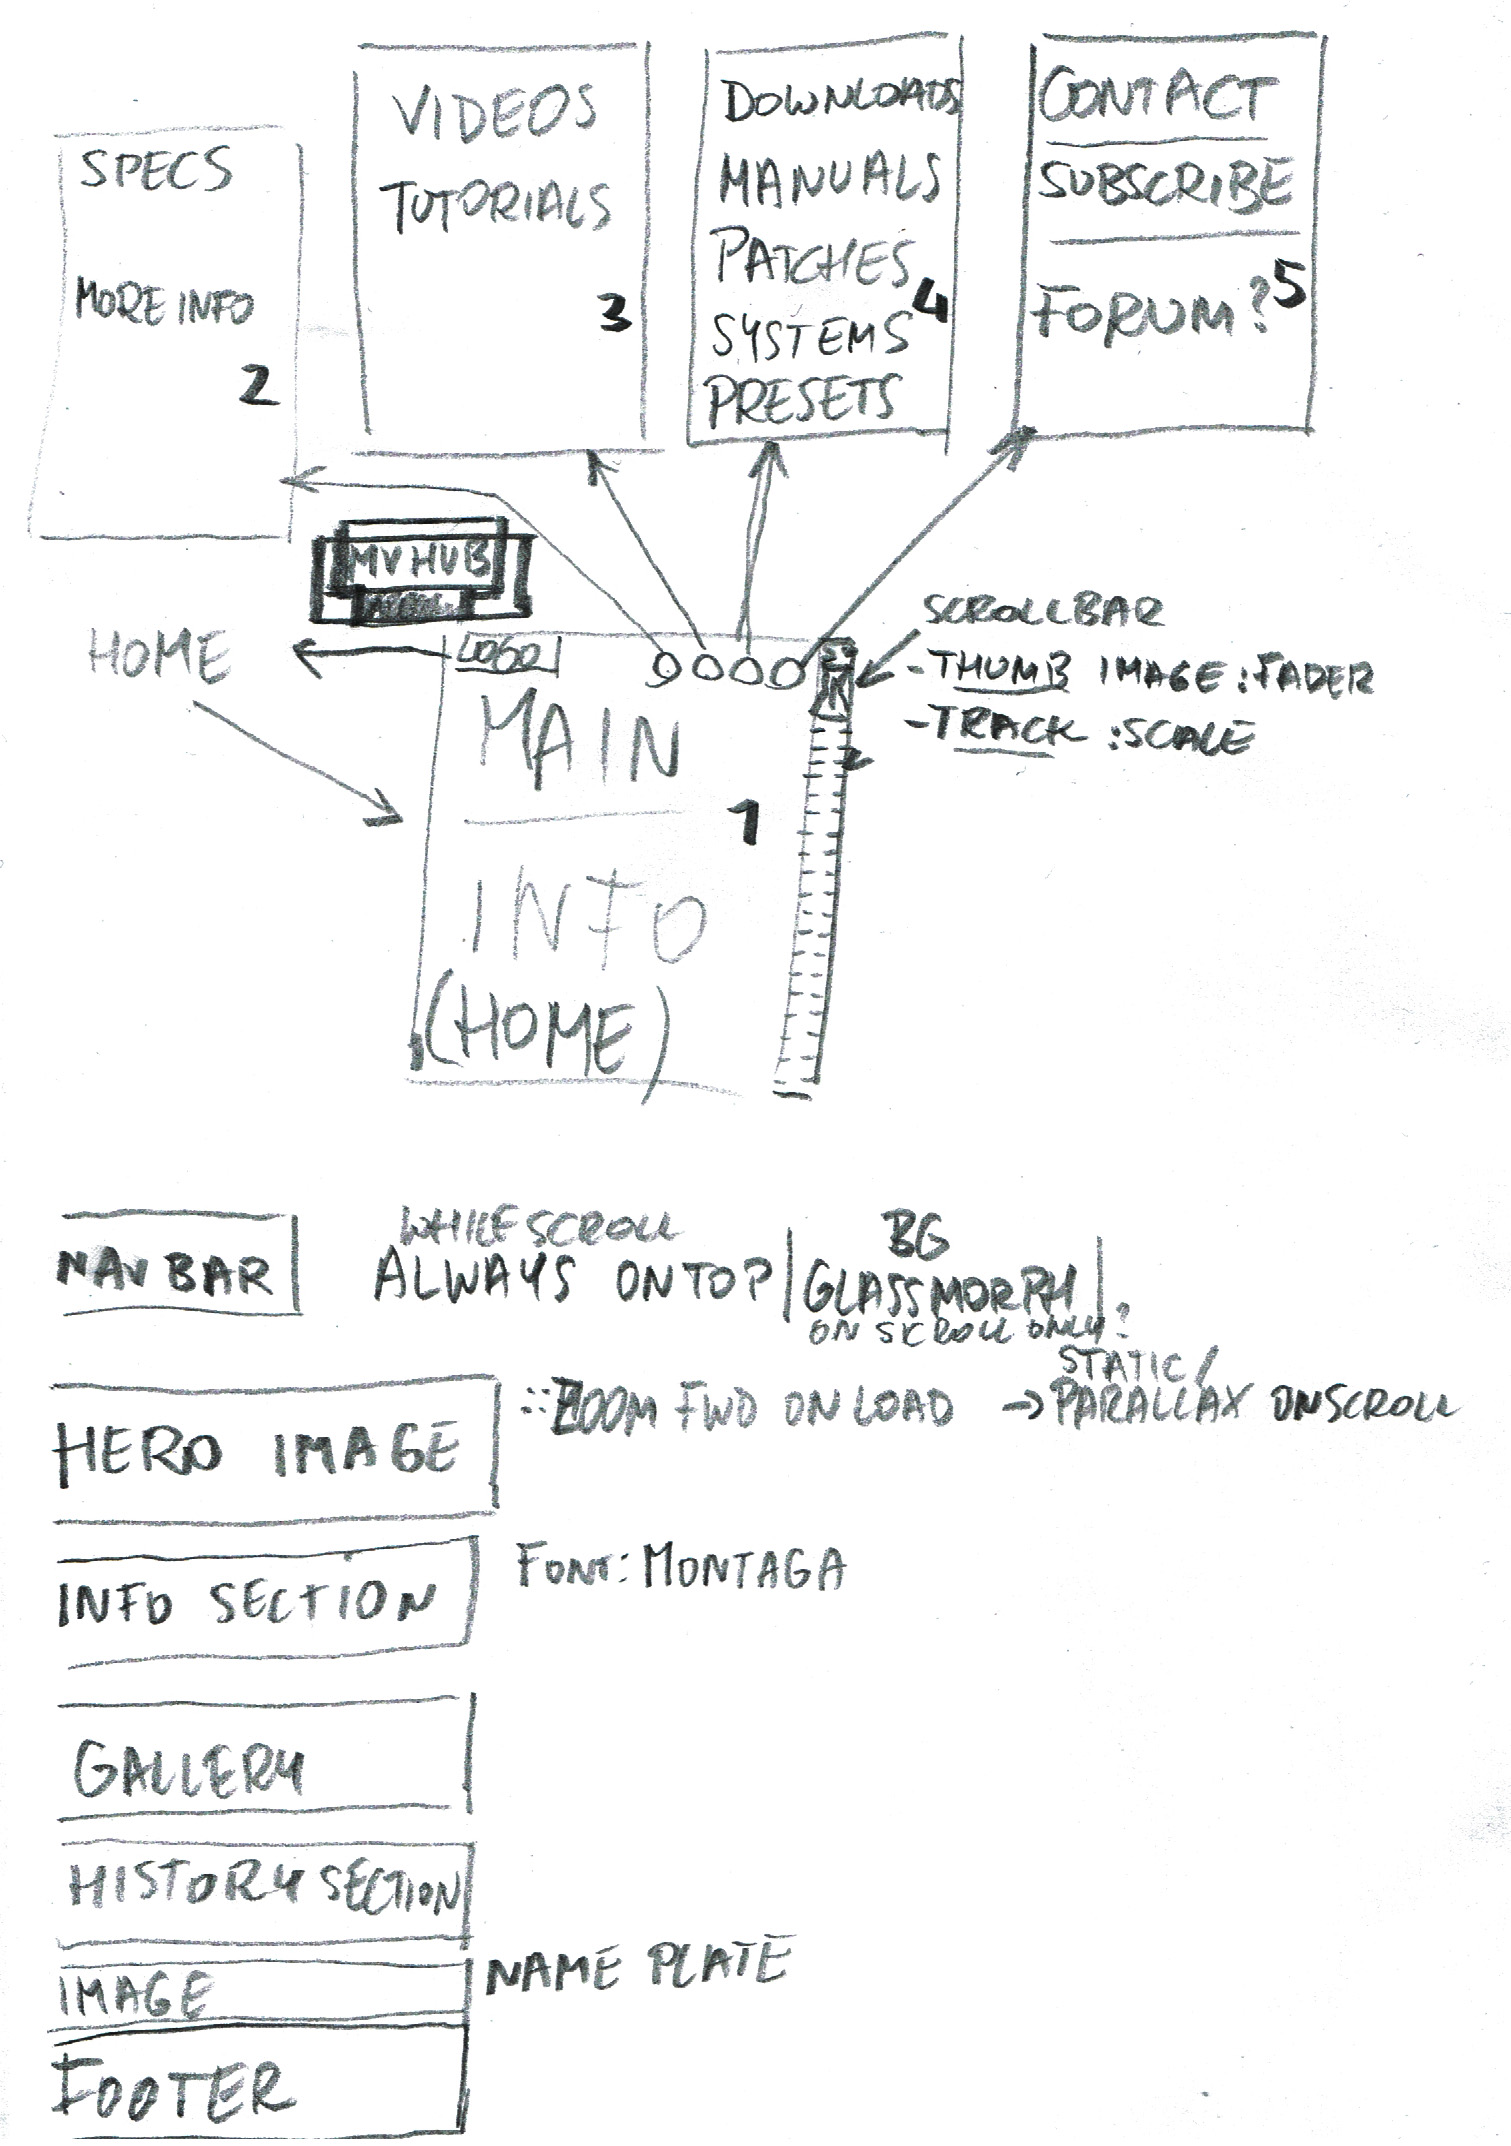 SPECS
MORE INFO
2
VIDEOS
TUTORIALS
3
DOWNLOADS
MANUALS
PATCHES
4
SYSTEMS
PRESETS
CONTACT
SUBSCRIBE
FORUM?
5
MV HUB
HOME
LOGO
MAIN
1
INFO
(HOME)
SCROLLBAR
-THUMB IMAGE:FADER
-TRACK :SCALE
NAVBAR
WHILE SCROLL
ALWAYS ON TOP
BG
GLASSMORPH
ON SCROLL ONLY?
HERO IMAGE
::ZOOM FWD ON LOAD → STATIC/
PARALLAX ONSCROLL
INFO SECTION
FONT: MONTAGA
GALLERY
HISTORY SECTION
IMAGE
NAME PLATE
FOOTER